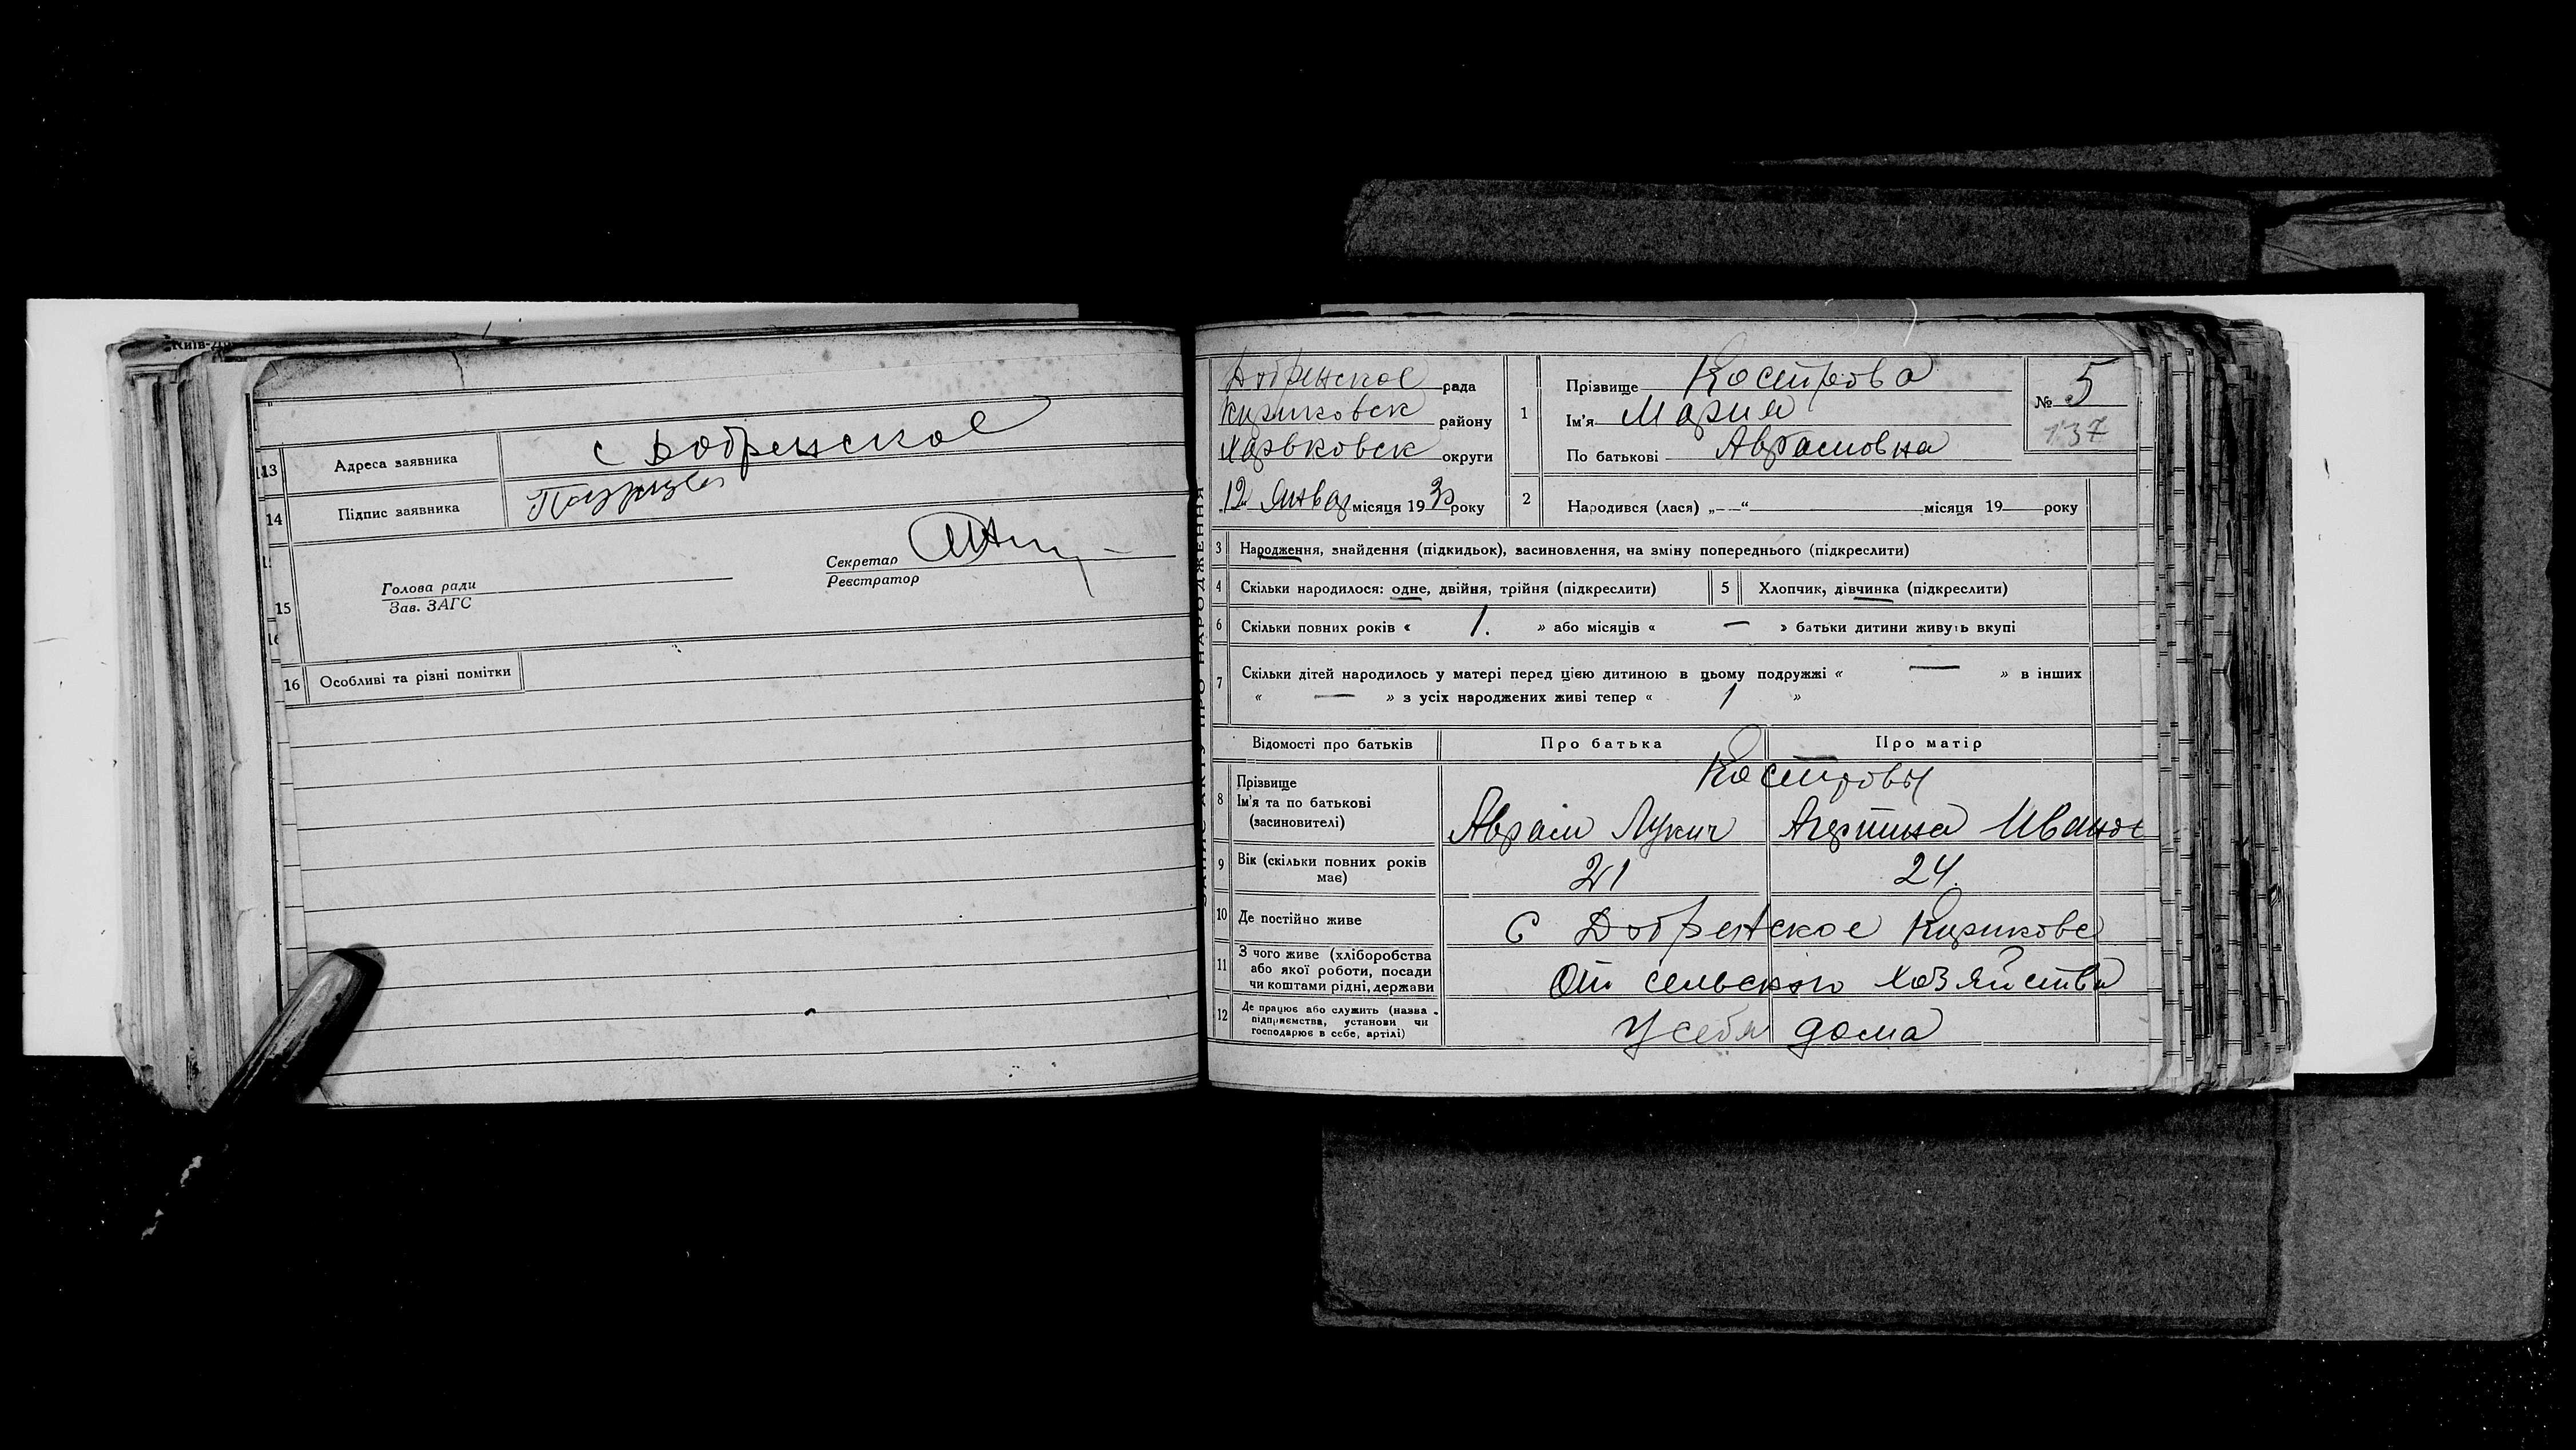 Київ-
13 Адреса заявника с Добренское
14 Підпис заявника
Секретар
Реєстратор
Голова ради
Зав. ЗАГС
15
16 Особливі та різні помітки
ЗАПИС АКТУ ПРО НАРОДЖЕННЯ
Добренское рада
округи Харьковск
району
12 Январ місяця 1930 року
1 Прізвище Кострова
Ім'я Мария
По батькові Аврамовна
№ 5
137
2 Народився (лася) „—“ місяця 19 року
3 Народження, знайдення (підкидьок), засиновлення, на зміну попереднього (підкреслити)
4 Скільки народилося: одне, двійня, трійня (підкреслити) 5 Хлопчик, дівчинка (підкреслити)
6 Скільки повних років « 1. » або місяців « — » батьки дитини живуть вкупі
7 Скільки дітей народилось у матері перед цією дитиною в цьому подружжі « — » в інших
« — » з усіх народжених живі тепер « 1 »
Відомості про батьків Про батька Про матір
8 Прізвище Костровы
Ім'я та по батькові
(засиновителі) Аврам Лукич Агрипина Иванов
9 Вік (скільки повних років має) 21 24.
10 Де постійно живе С Добренское
11 З чого живе (хліборобства
або якої роботи, посади
чи коштами рідні, держави От сельского хозяйства
12 Де працює або служить (назва
підприємства, установи чи
господарює в себе, артілі) У себя дома